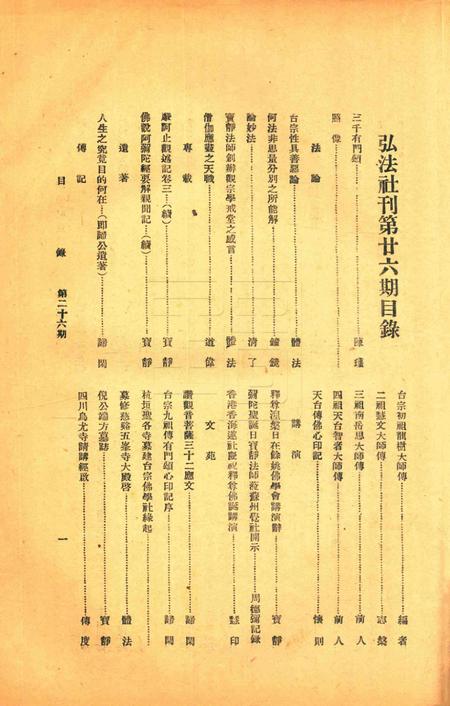 弘法社刊第廿六期目錄
三千有門頌……陳瓘
照像
法論
台宗性具善惡論……體法
何法非思量分別之所能解……鏡
論妙法……清了
寶靜法師創辦觀宗學戒堂之感言……體法
僧伽應盡之天職……道偉
專載
摩訶止觀述記卷三…(續)……寶靜
佛說阿彌陀經要解親聞記…(續)……寶靜
遺著
人生之究竟目的何在…(即諦公遺著)……諦閑
傳記
台宗初祖龍樹大師傳……編者
二祖慧文大師傳……志磐
三祖南岳思大師傳……前人
四祖天台智者大師傳……前人
天台傳佛心印記……懷則
講演
釋尊涅槃日在餘姚佛學會講演辭……寶靜
彌陀聖誕日寶靜法師蒞蘇州覺社開示……周穗彌記錄
香港香海蓮社慶祝釋尊佛誕講演……印
文苑
讚觀音菩薩三十二應文……諦閑
台宗九祖傳有門頌心印記序……諦閑
杭垣聖各寺募建台宗佛學社緣起……
募修慈谿五峯寺大殿啓……體法
倪公端方墓誌……寶靜
四川烏尤寺請講經啟……傳度
目錄 第二十六期 一